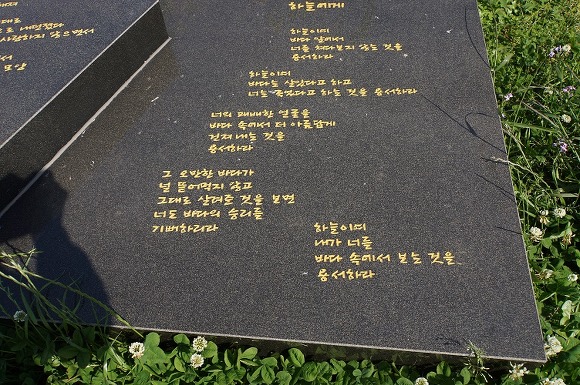 로 내던졌다
사랑하지 않으면서
서
모양
하늘에게
하늘이여
바다 앞에서
너를 쳐다보지 않는 것을
용서하라
하늘이여
바다는 살았다고 하고
너는 죽었다고 하는 것을 용서하라
너의 패배한 얼굴을
바다 속에서 더 아름답게
건져내는 것을
용서하라
그 오만한 바다가
널 뜯어먹지 않고
그대로 살려준 것을 보면
너도 바다의 승리를
기뻐하리라
하늘이여
내가 너를
바다 속에서 보는 것을
용서하라